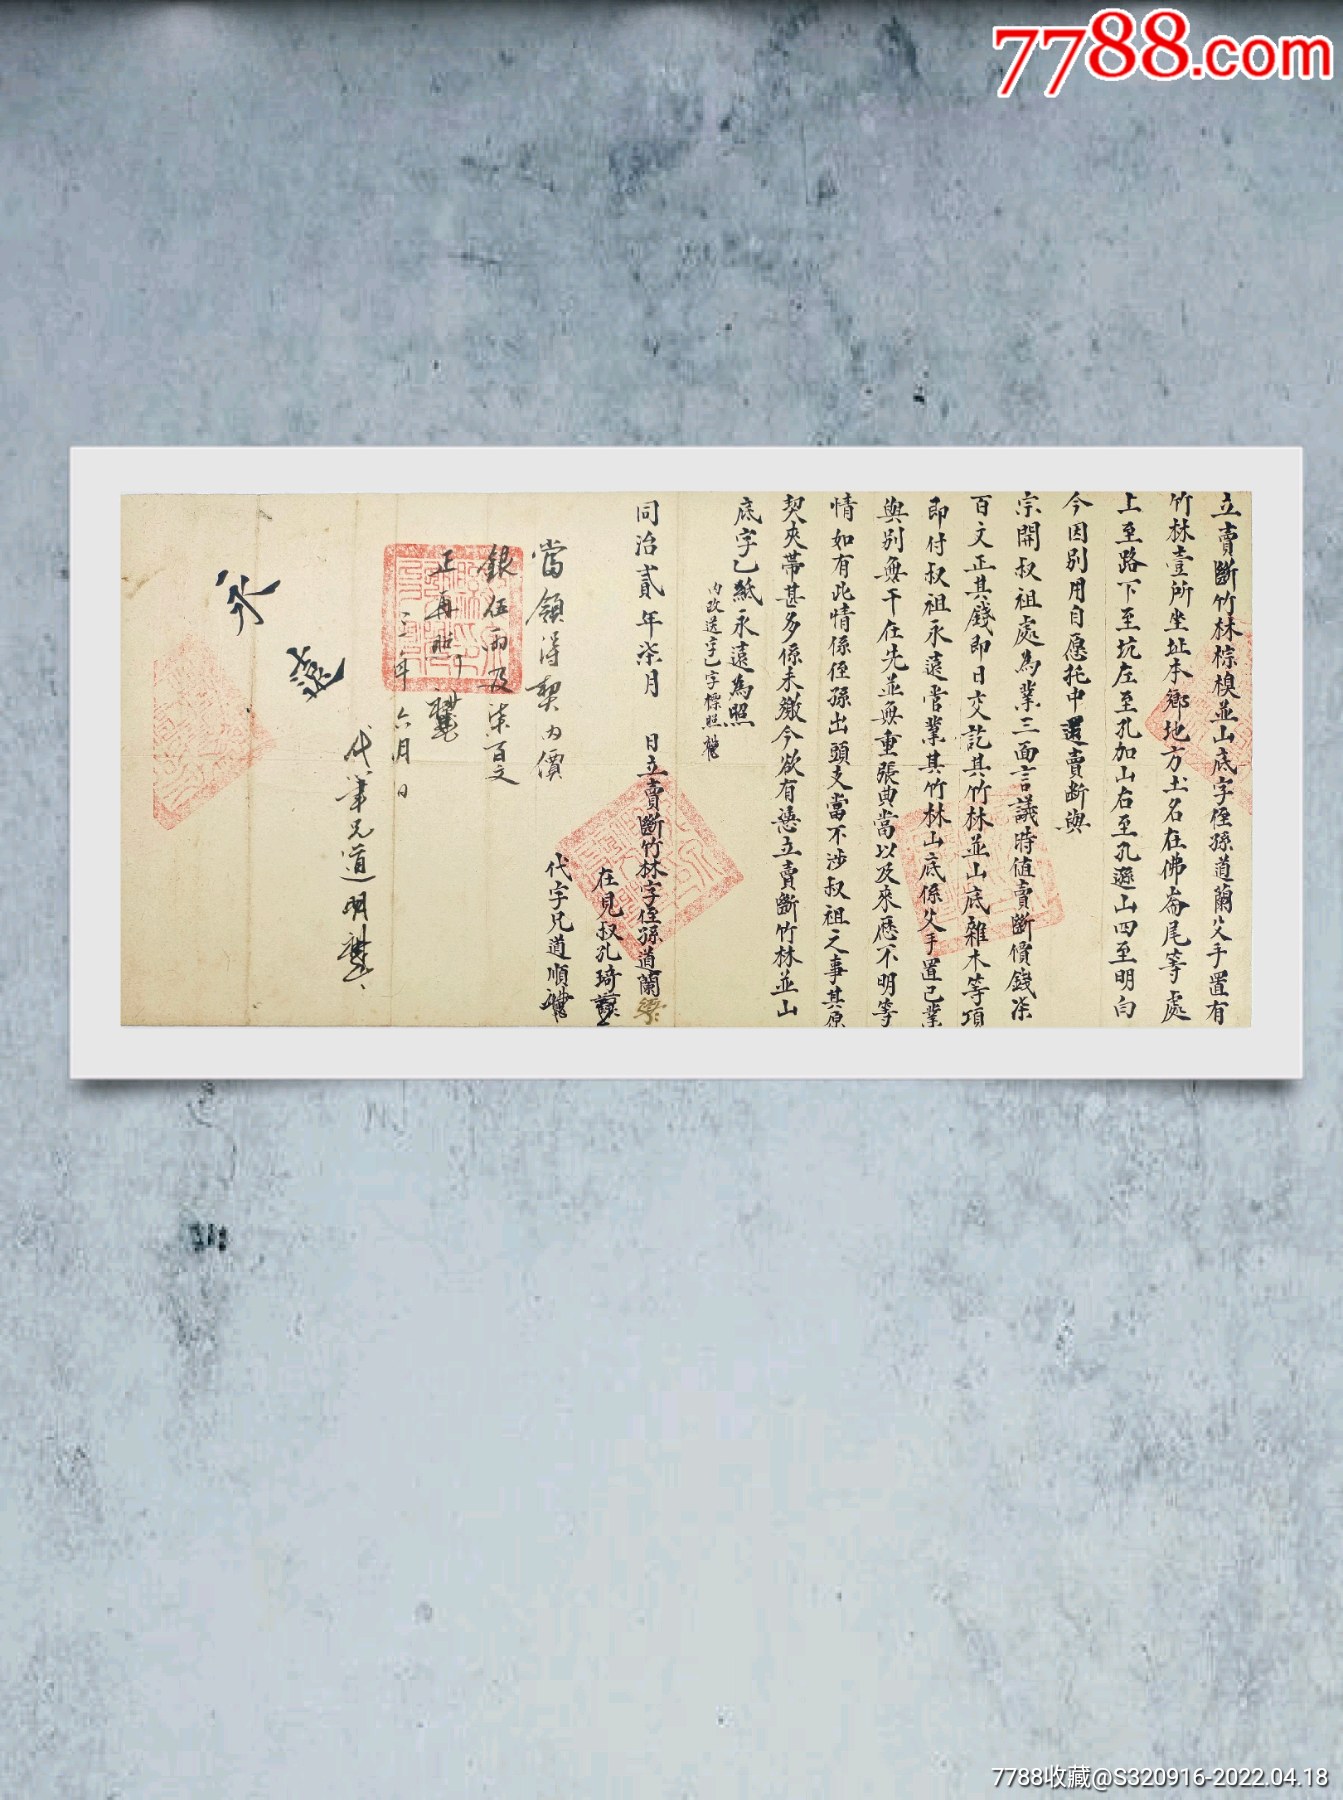 7788.com
立賣斷竹林棕模並山底字侄孫道蘭父手置有
竹林壹所坐址本鄉地方土名在佛崙尾等處
上至路下至坑左至孔加山右至孔遜山四至明白
今因別用自愿托中送賣断與
宗開叔祖處為業三面言議時值賣斷價錢柒
百文正其錢即日交訖其竹林並山底雜木等項
即付叔祖永遠管業其竹林山底係父手置己業
與別無干在先並無重張典當以及來歷不明等
情如有此情係侄孫出頭支當不涉叔祖之事其原
契夾帶甚多係未繳今欲有憑立賣斷竹林並山
底字乙紙永遠為照
內改送字乙字標照
同治貳年柒月 日立賣斷竹林字侄孫道蘭
在見叔孔琦
代字兄道順
當領得契內價
銀伍兩及柒百文
正再照
三年六月日
代筆兄道明
永遠
7788收藏@S320916-2022.04.18